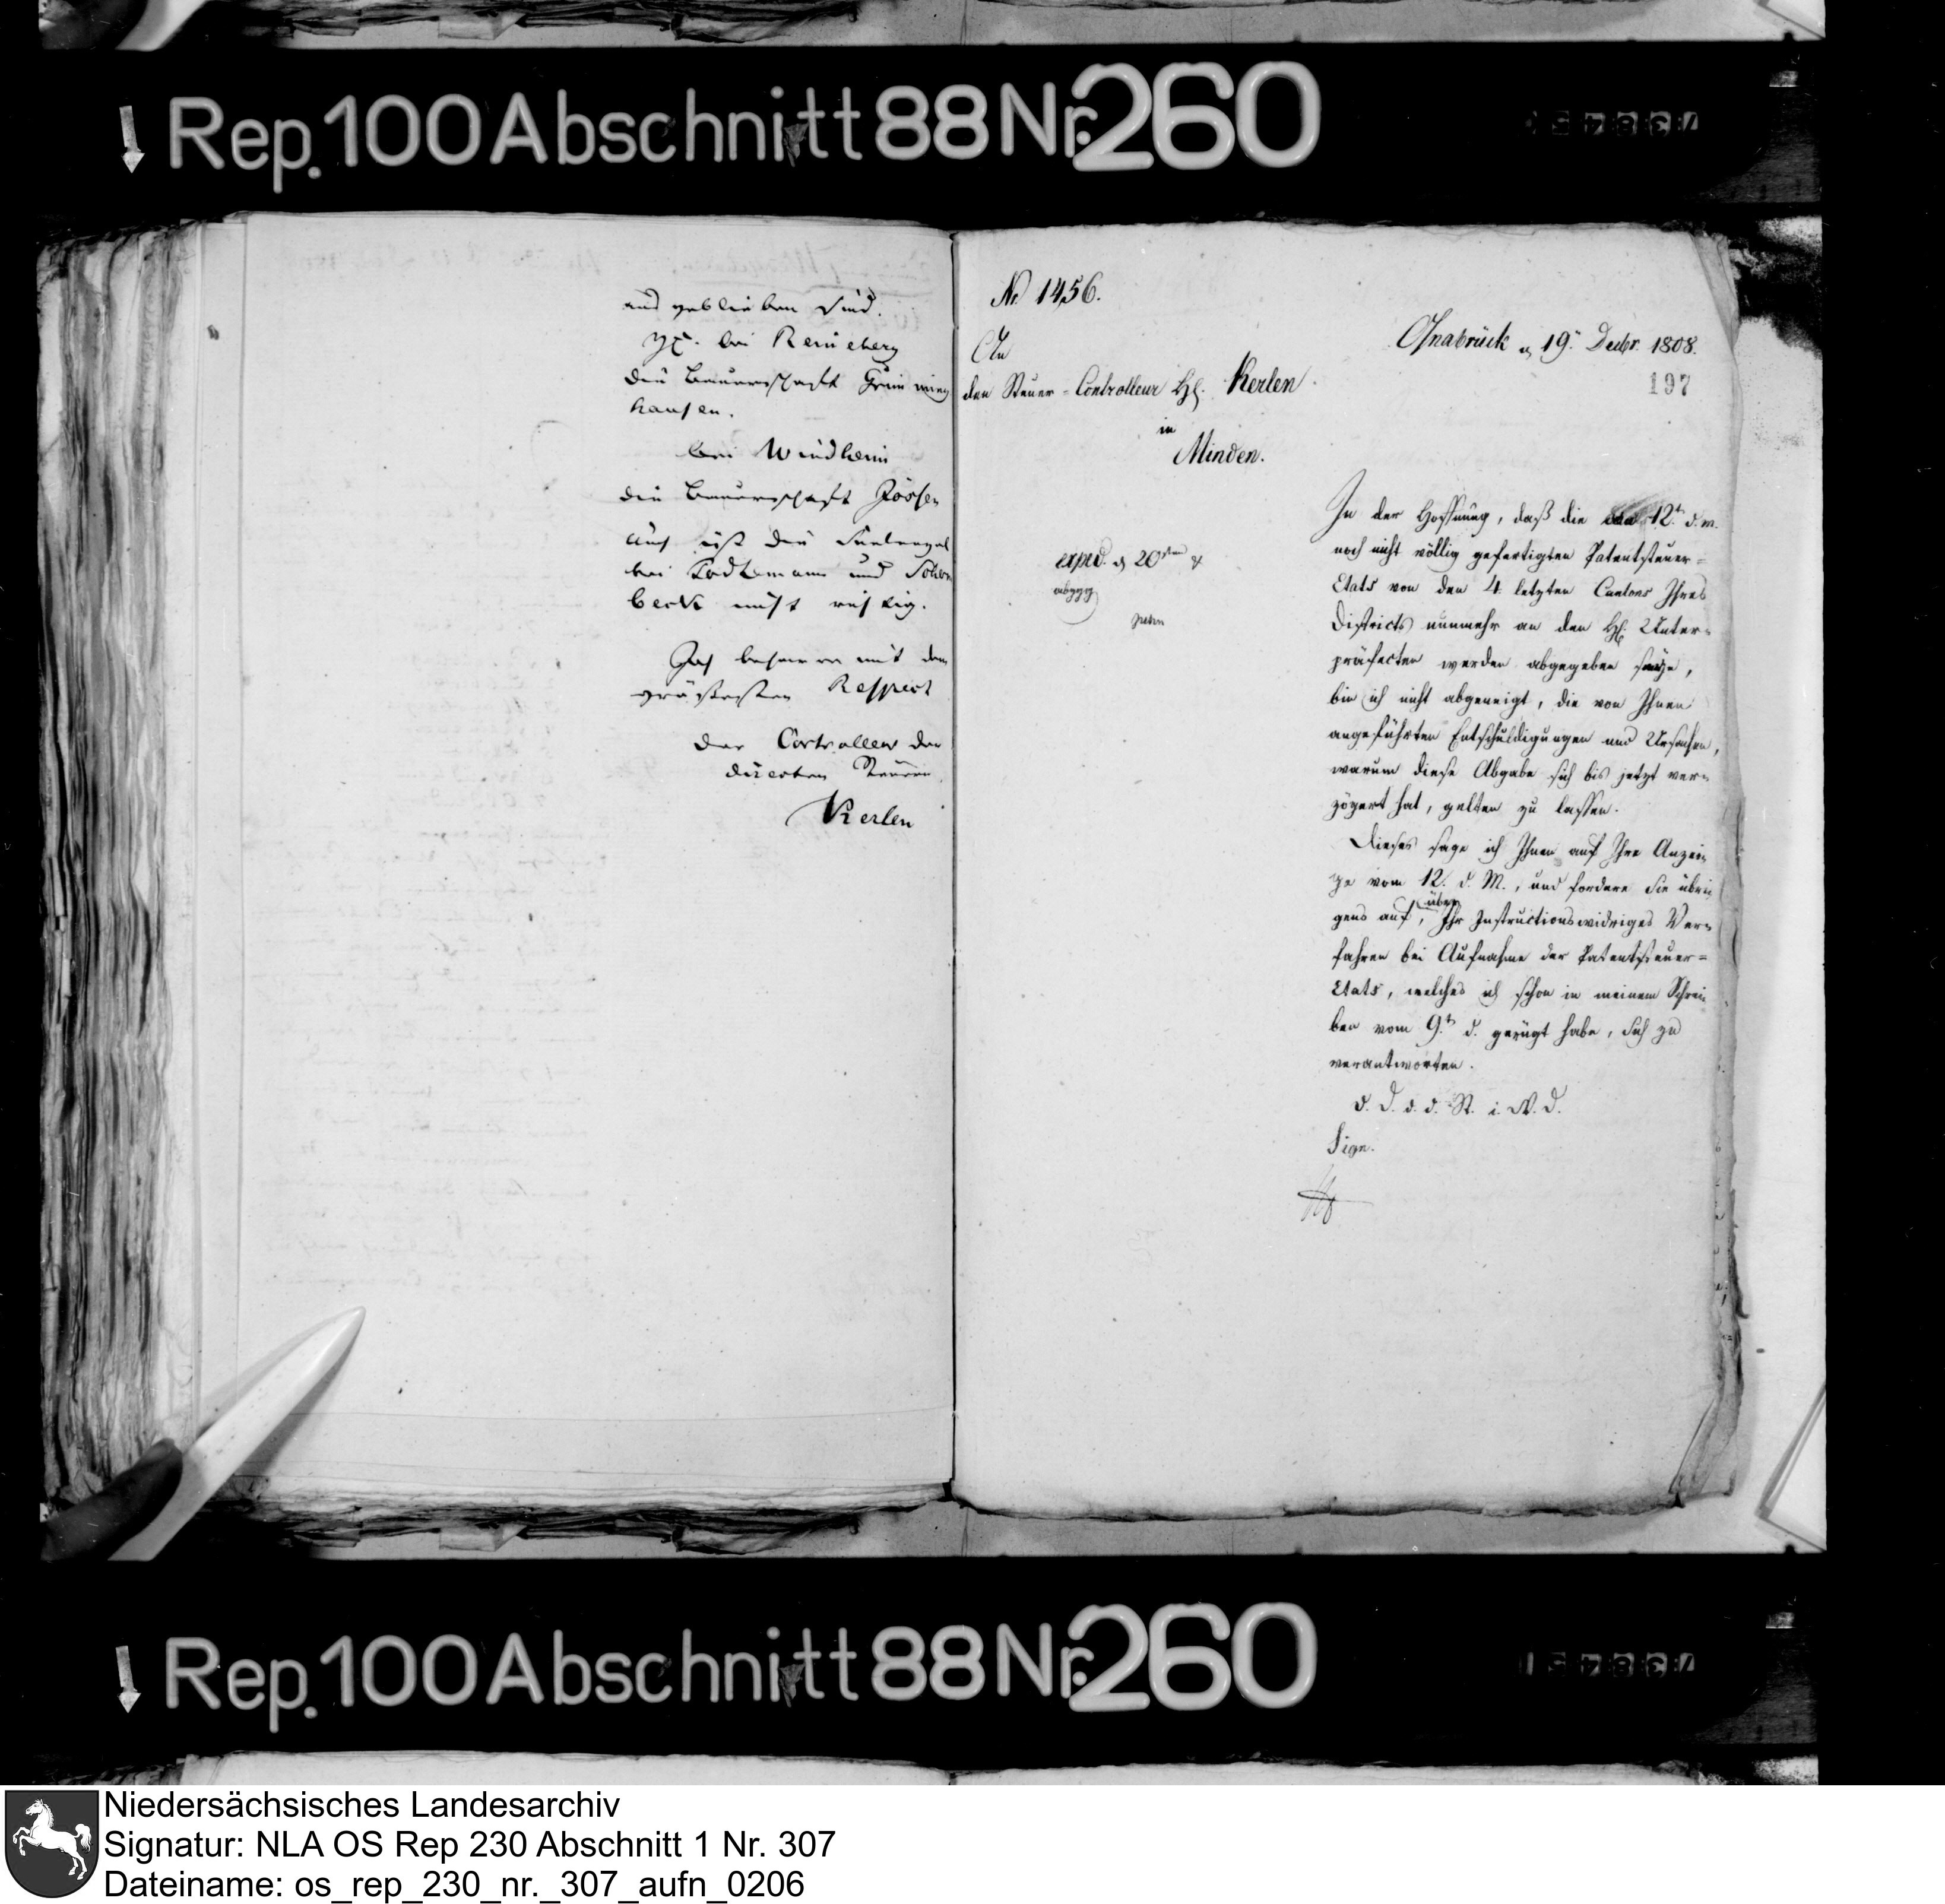 Rep. 100 Abschnitt 88 Nr. 260
aus geblieben sind.
bei Renneberg
die Bauerschaft
hausen.
bei Windheim
die Bauerschaft Jössen
Auch ist die Seelenzahl
bei und
beck nicht richtig.
Ich beharre mit dem
größesten Respect
Der Controlleur der
directen Steuern
Kerlen
No 1456.
Osnabrück d 19n Decbr. 1808.
197
An
den Steuer-Controlleur H. Kerlen
in
Minden.
expd. d 20sten
In der Hoffnung, daß die 12t d. M.
noch nicht völlig gefertigten Patentsteuer-
Etats von den 4 letzten Cantons Ihres
Districts nunmehr an den H. Unter-
präfecten werden abgegeben seyn,
bin ich nicht abgeneigt, die von Ihnen
angeführten Entschuldigungen und Ursachen,
warum diese Abgabe sich bis jetzt ver-
zögert hat, gelten zu lassen.
Dieses sage ich Ihnen auf Ihre Anzei-
ge vom 12. d. M., und fordere Sie übri-
gens auf, über Ihr Instructionswidriges Ver-
fahren bei Aufnahme der Patentsteuer-
Etats, welches ich schon in meinem Schrei-
ben vom 9.t d. gerügt habe, sich zu
verantworten.
d. D. d. d. St. i. W. D.
Sign.
Rep. 100 Abschnitt 88 Nr. 260
Niedersächsisches Landesarchiv
Signatur: NLA OS Rep 230 Abschnitt 1 Nr. 307
Dateiname: os_rep_230_nr._307_aufn_0206